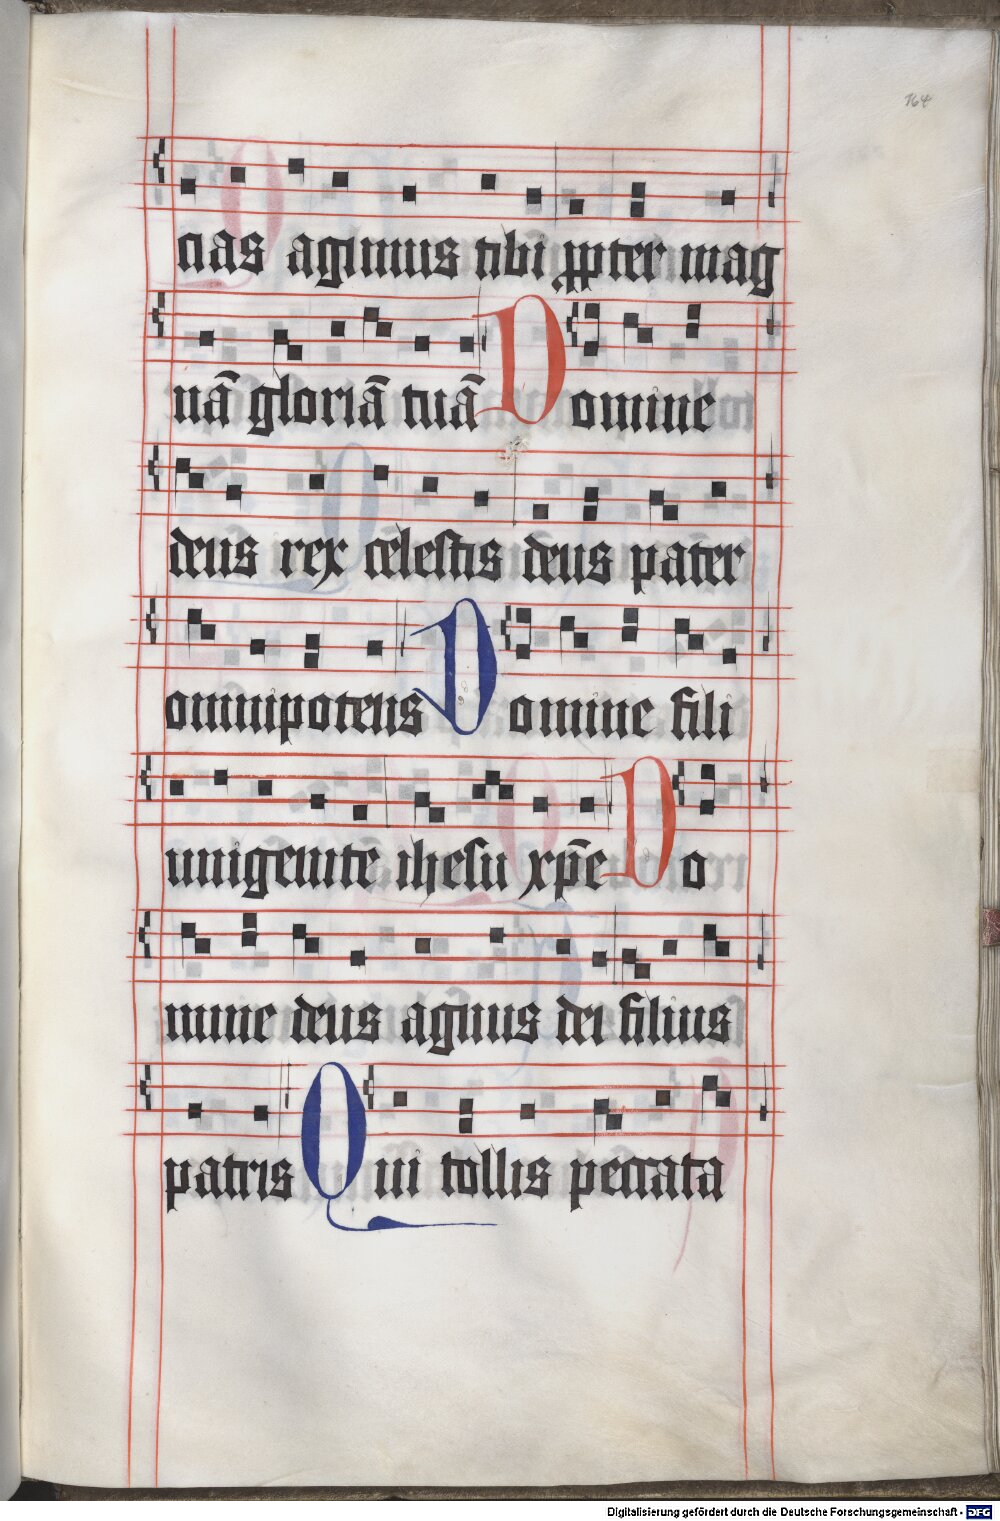 164
cias agimus tibi ꝓpter mag
nā gloriā tuā Domine
deus rex celestis deus pater
omnipotens Domine fili
unigenite ihesu xp̄e Do
mine deus agnus dei filius
patris Qui tollis peccata
Digitalisierung gefördert durch die Deutsche Forschungsgemeinschaft - DFG